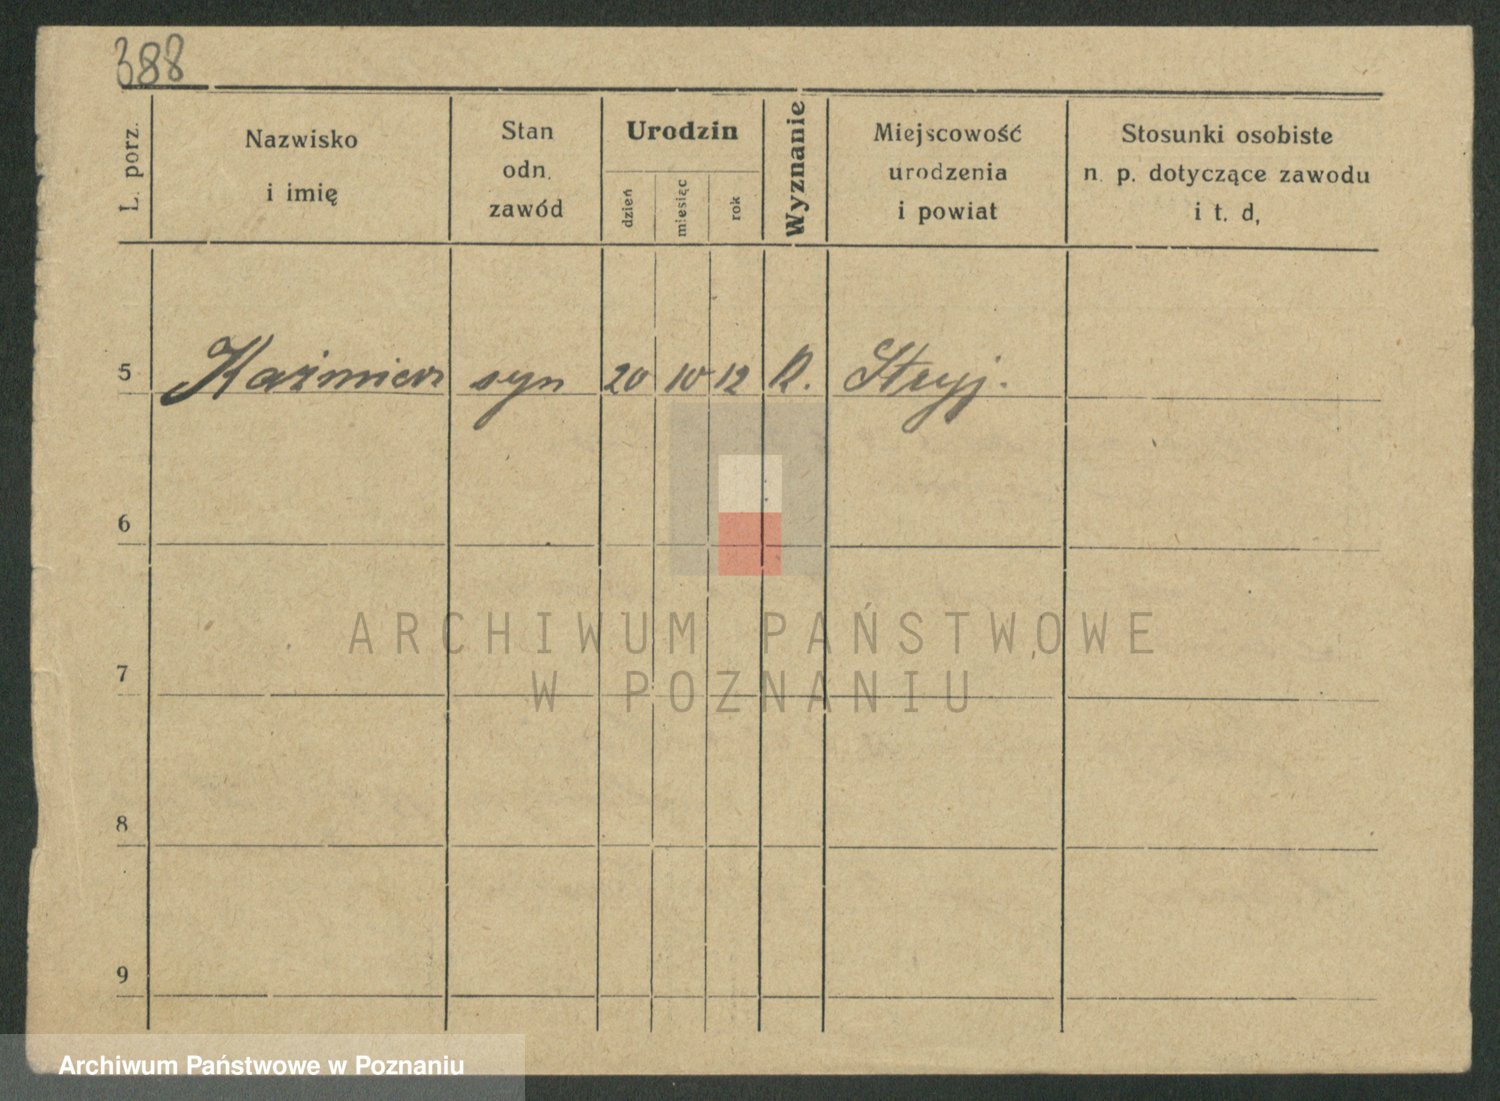 388
L. porz.
Nazwisko
i imię
Stan
odn.
zawód
Urodzin
dzień
miesiąc
rok
Wyznanie
Miejscowość
urodzenia
i powiat
Stosunki osobiste
n. p. dotyczące zawodu
i t. d,
5 Kazimierz syn 20 10 12 R. Stryj.
6
7
8
9
ARCHIWUM PAŃSTWOWE
W POZNANIU
Archiwum Państwowe w Poznaniu